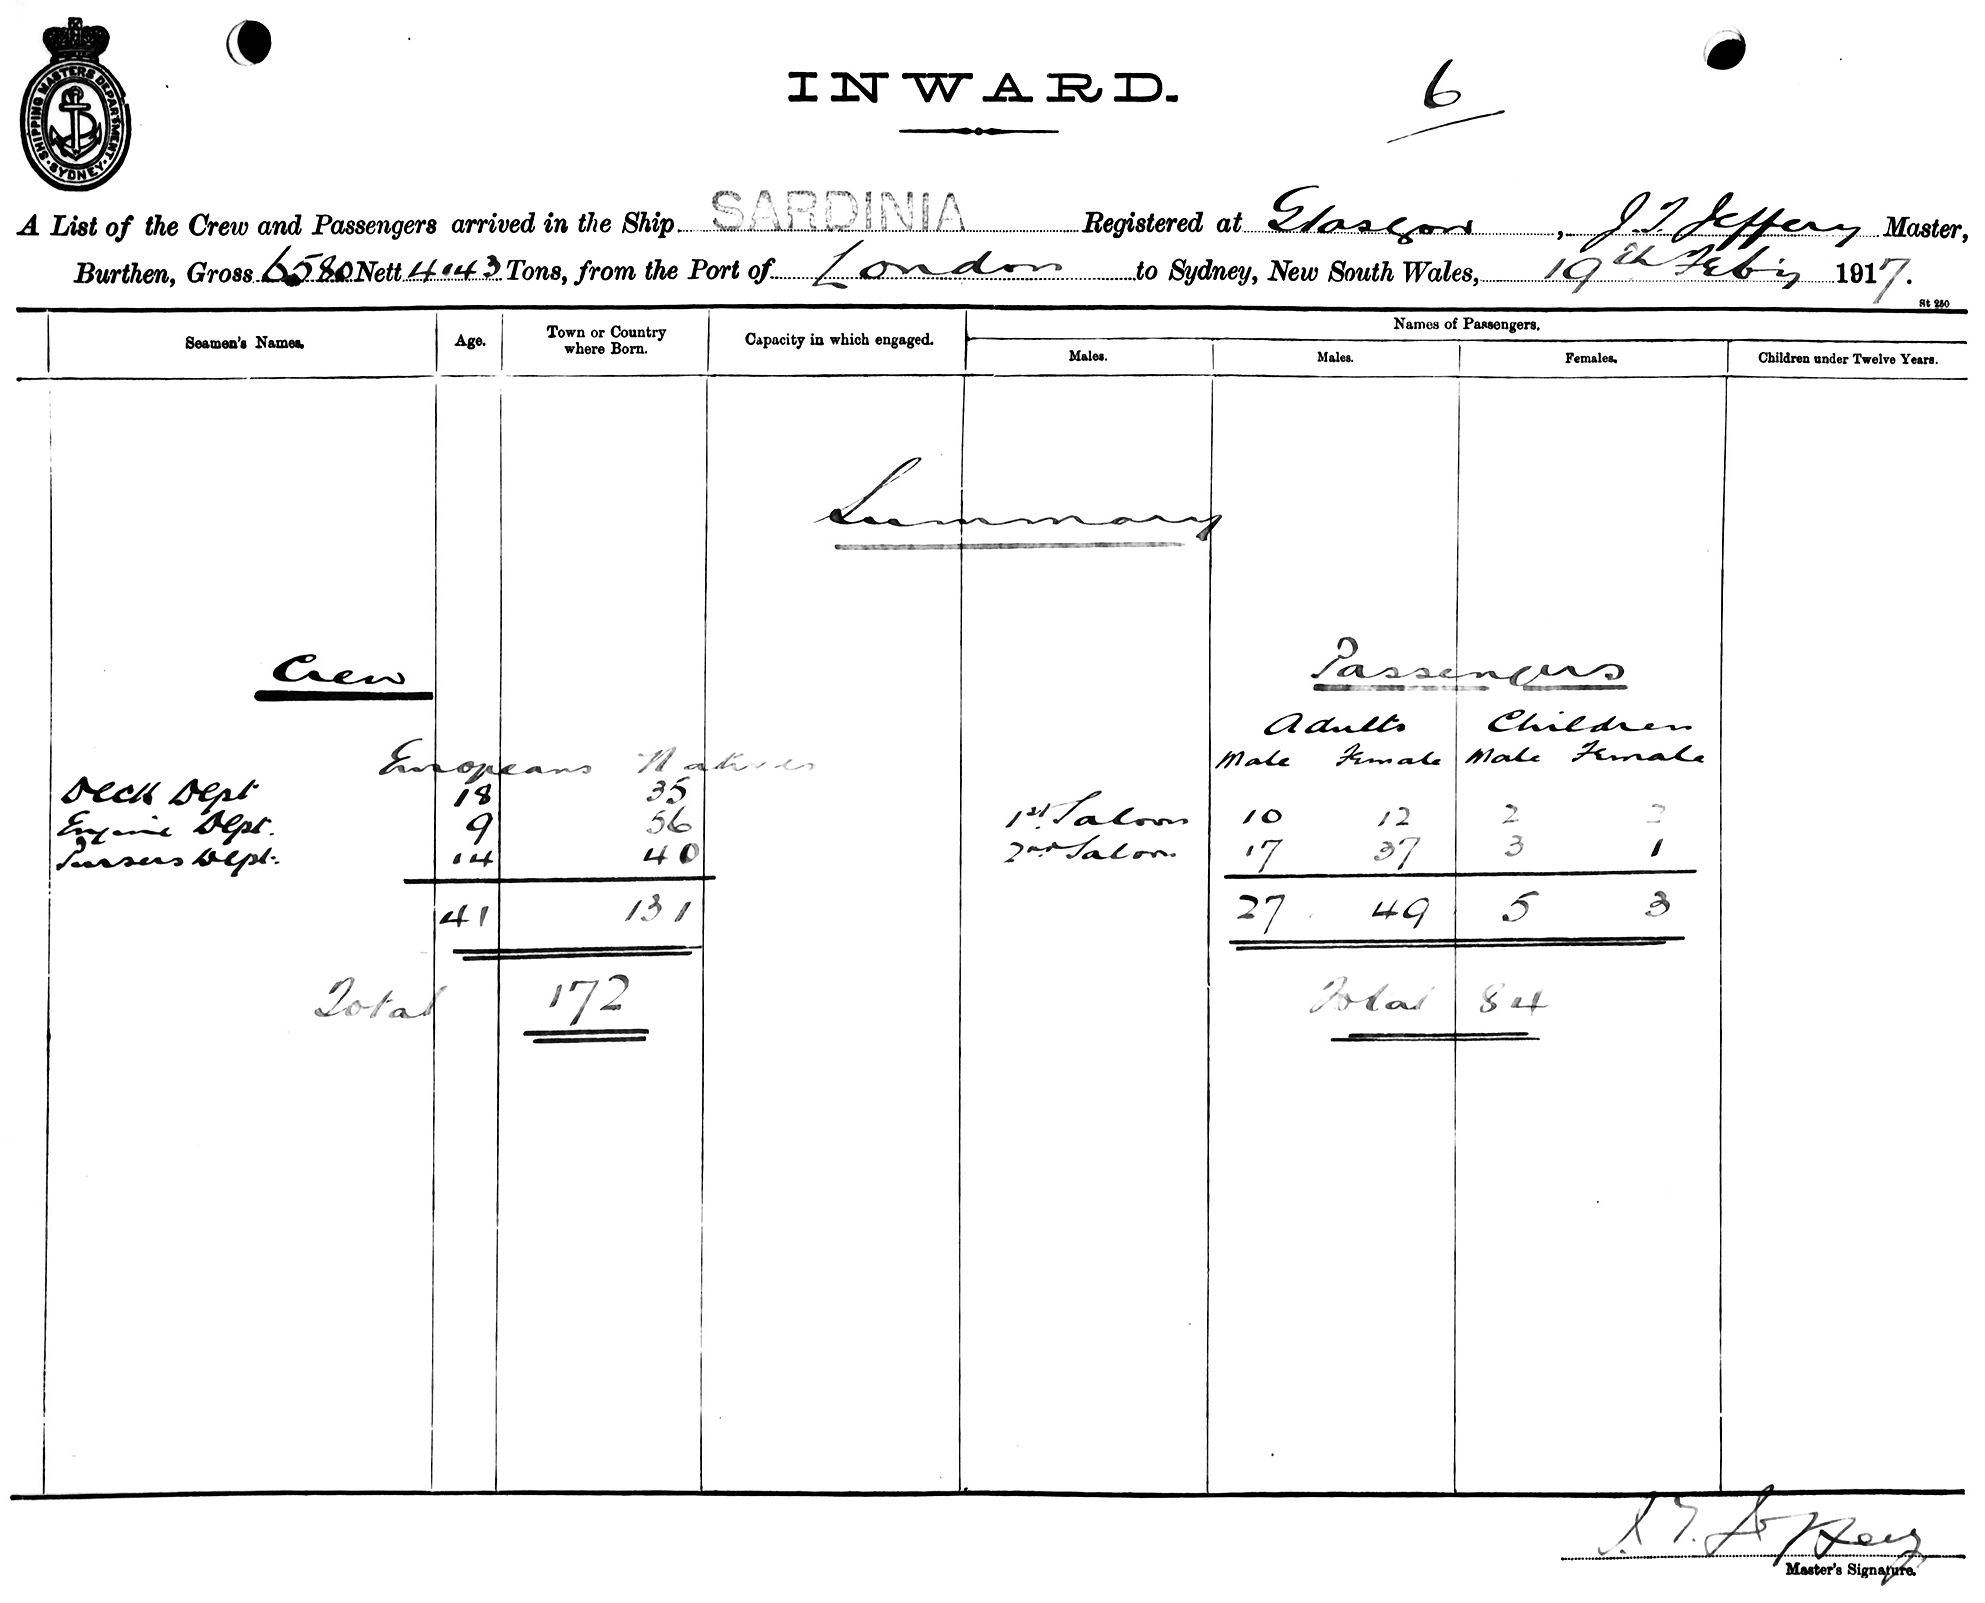 SHIPPING MASTERS DEPARTMENT
SYDNEY
INWARD.
6
A List of the Crew and Passengers arrived in the Ship SARDINIA Registered at Glasgow, J. T. Jeffery Master,
Burthen, Gross 6580 Nett 4043 Tons, from the Port of London to Sydney, New South Wales, 19th Feb'y 1917.
St 250
Seamen's Names. Age. Town or Country where Born. Capacity in which engaged. Names of Passengers.
Males. Males. Females. Children under Twelve Years.
Summary
Crew Passengers
Adults Children
Europeans Natives Male Female Male Female
Deck Dept 18 35
Engine Dept. 9 56 1st Saloon 10 12 2 2
Pursers Dept. 14 40 2nd Saloon 17 37 3 1
41 131 27 49 5 3
Total 172 Total 84
J. T. Jeffery
Master's Signature.